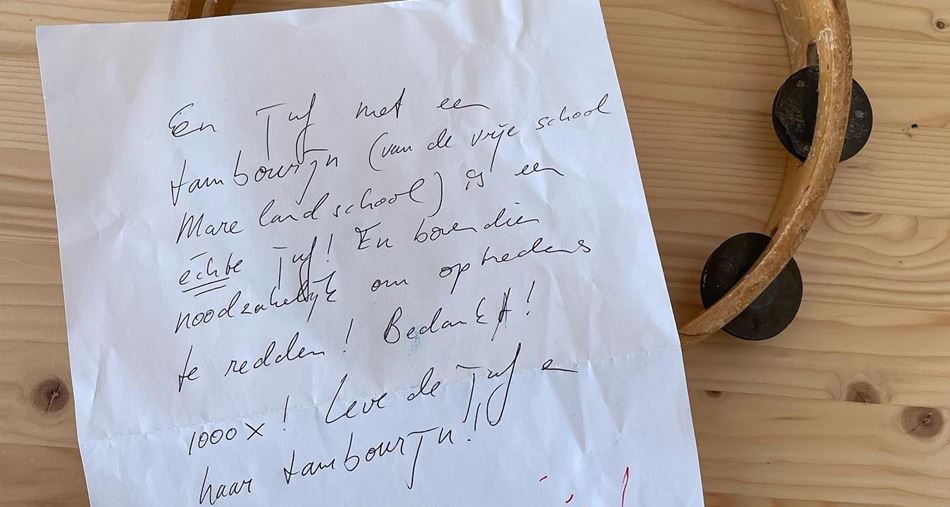 Een Juf met een
tambourijn (van de vrije school
Mareland school) is een
échte Juf! En bovendien
noodzakelijk om optredens
te redden! Bedankt!
1000x! Leve de Juf en
haar tambourijn!!